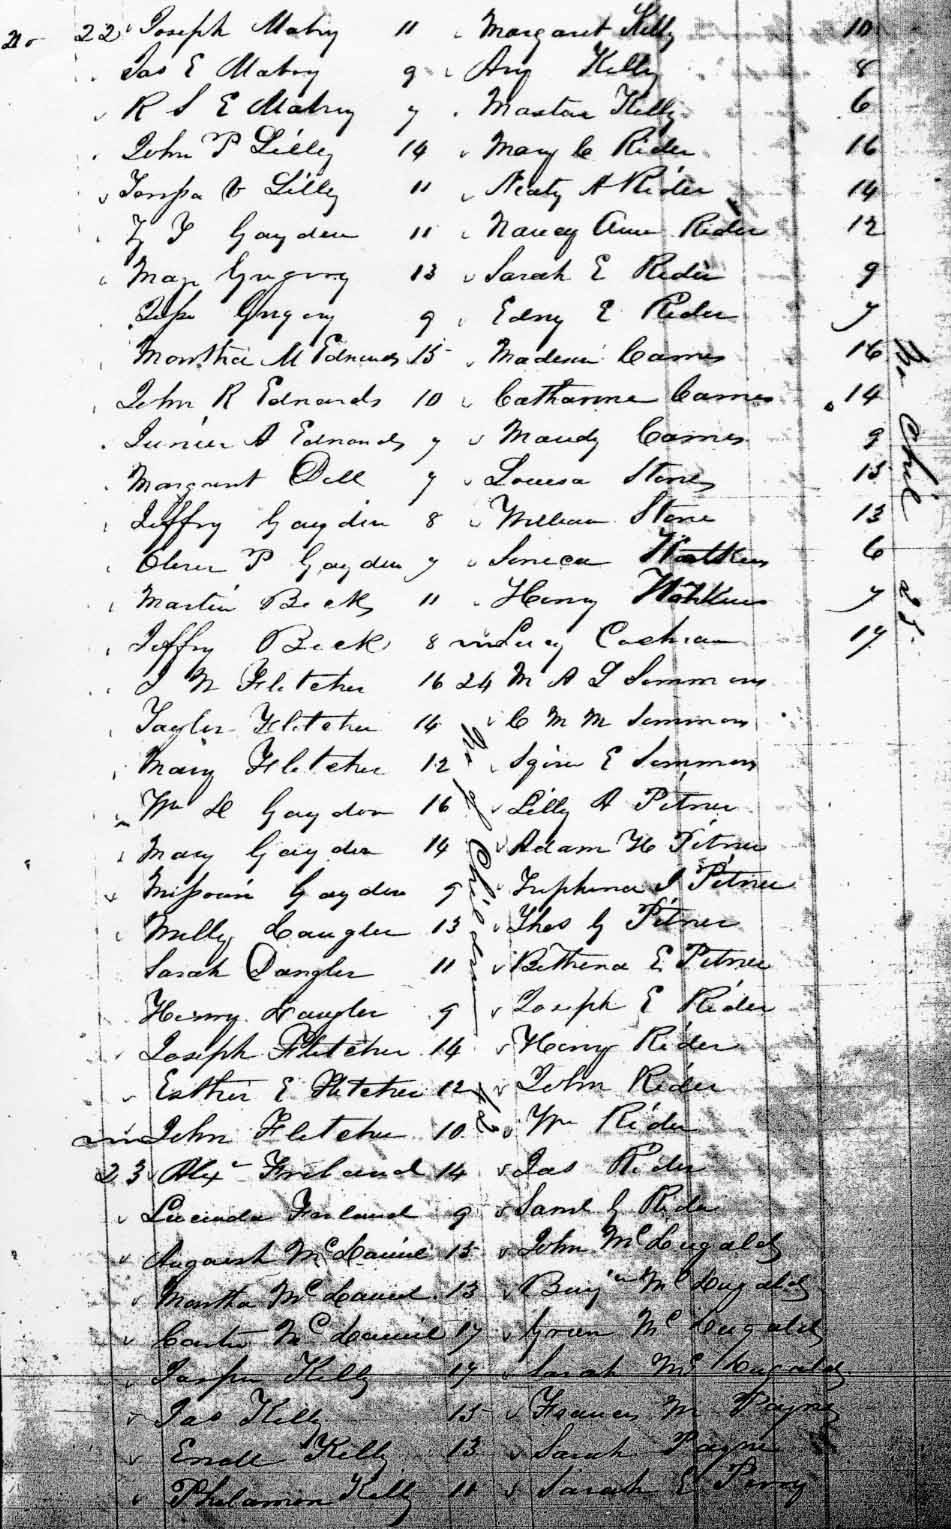 No 22 Joseph Mabry 11 Margaret Kelly 10
Jas E Mabry 9 Kelly 8
R S E Mabry 7 Kelly 6
John P Lilly 14 Mary C Rider 16
Lilly 11 A Rider 14
Gayden 11 Nancy Ann Rider 12
May Gregory 13 Sarah E Rider 9
Gregory 9 Edny E Rider 7
Martha M Edwards 15 Carnes 16
John R Edwards 10 Catharine Carnes 14
Junior A Edwards 7 Mandy Carnes 9
Margaret Dell 7 Louisa Stone 13
Jeffry Gayden 8 William Stone 13
Oliver P Gayden 7 Seneca Watkins 6
Martin Beck 11 Henry Watkins 7
Jeffry Beck 8 Lucy Cochran 17
J N Fletcher 16 24 M A L Simmons
Taylor Fletcher 14 C M M Simmons
Mary Fletcher 12 E Simmons
Wm H Gayden 16 Lilly A Pitner
Mary Gayden 14 Adam H Pitner
Missouri Gayden 9 Tryphena J Pitner
Milly Dangler 13 Thos G Pitner
Sarah Dangler 11 Bethena E Pitner
Henry Dangler 9 Joseph E Rider
Joseph Fletcher 14 Henry Rider
Esther E Fletcher 12 John Rider
John Fletcher 10 Wm Rider
23 Alex Freeland 14 Jas Rider
Lucinda Freeland 9 Saml G Rider
August McDaniel 15 John McDugald
Martha McDaniel 13 Benj'n McDugald
McDaniel 17 Green McDugald
Jasper Kelly 17 Sarah McDugald
Jas Kelly 15 Frances M Payne
Kelly 13 Sarah Payne
Philamon Kelly 11 Sarah E Perry
No of Children 42
No Chil 25